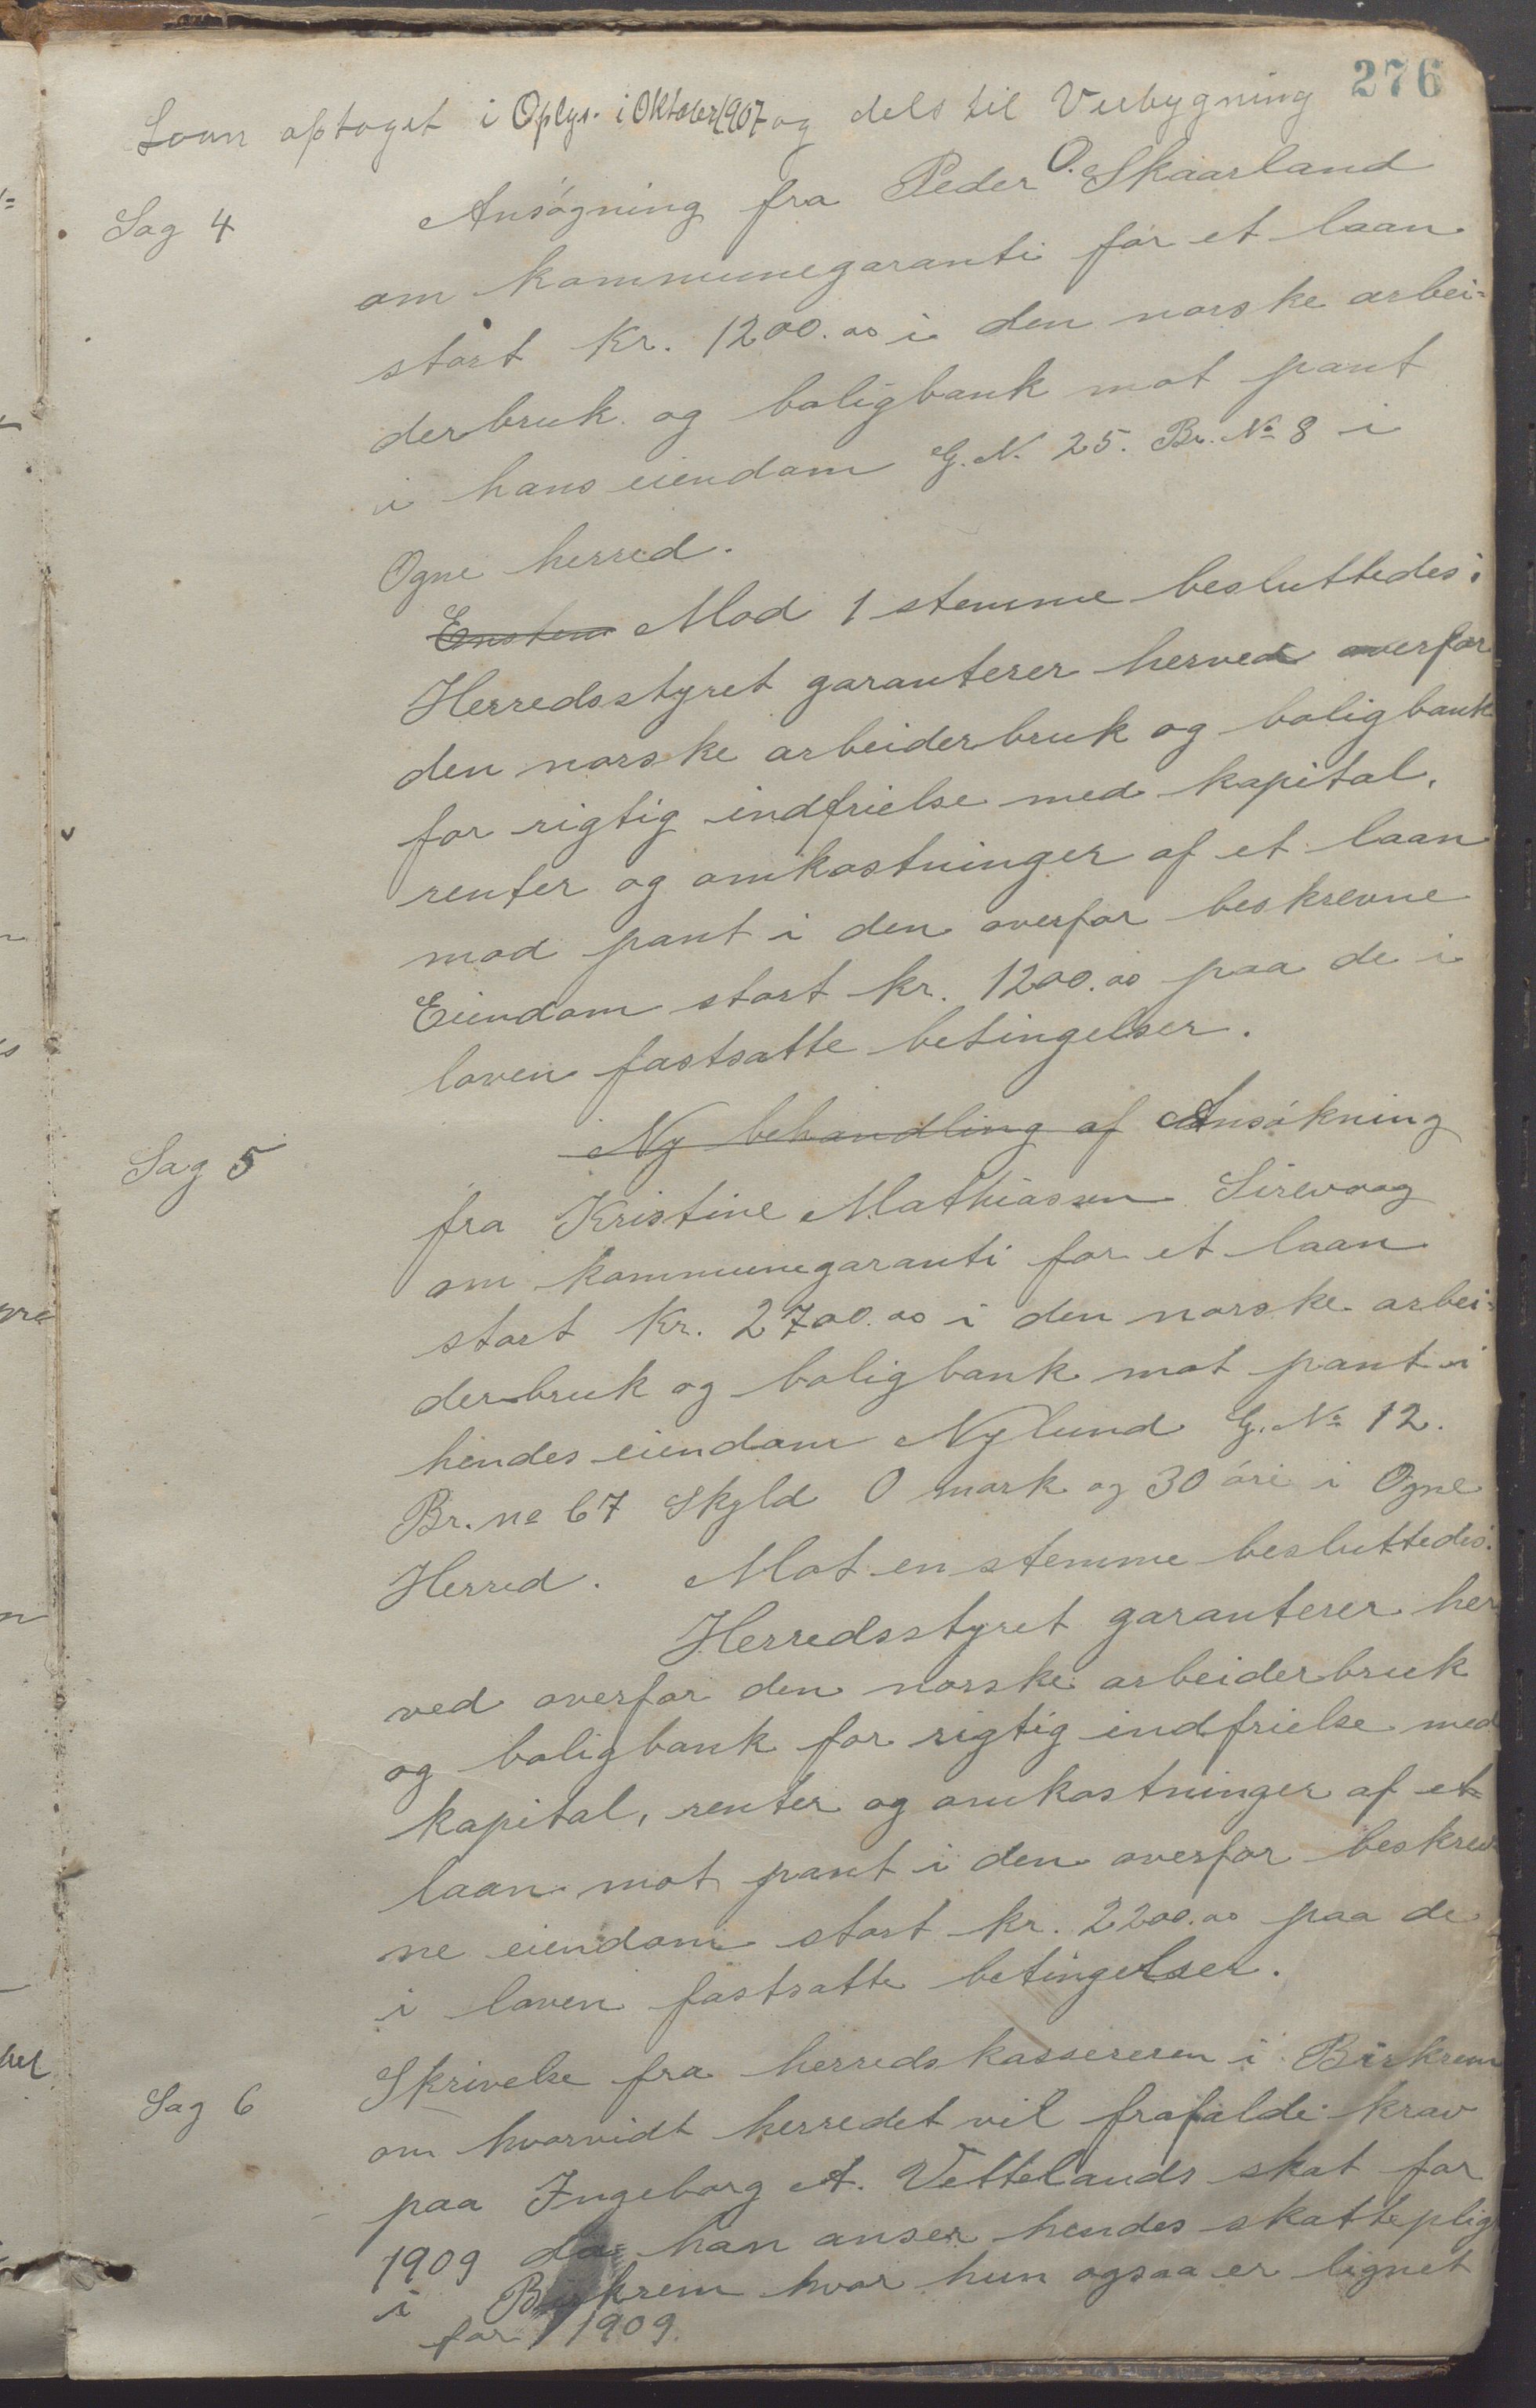 276
Loan optaget i Oplys. i Oktober 1907 og dels til Veibygning
Sag 4 Ansøgning fra Peder O. Skaarland
om kommunegaranti for et laan
stort Kr. 1200.00 i den norske arbei=
derbruk og boligbank mot pant
i hans eiendom G. N. 25. Br. No 8 i
Ogne herred.
Enstem Mod 1 stemme besluttedes:
Herredsstyret garanterer herved overfor
den norske arbeiderbruk og boligbank
for rigtig indfrielse med kapital,
renter og omkostninger af et laan
mod pant i den overfor beskrevne
Eiendom stort kr. 1200.00 paa de i
loven fastsatte betingelser.
Sag 5 Ny behandling af Ansøkning
fra Kristine Mathiassen Sirevaag
om kommunegaranti for et laan
stort Kr. 2700.00 i den norske arbei=
derbruk og boligbank mot pant i
hendes eiendom Nylund G. No 12.
Br. no 67 Skyld 0 mark og 30 øre i Ogne
Herred. Mot en stemme besluttedes:
Herredsstyret garanterer her
ved overfor den norske arbeiderbruk
og boligbank for rigtig indfrielse med
kapital, renter og omkostninger af et
laan mot pant i den overfor beskrev=
ne eiendom stort kr. 2200.00 paa de
i loven fastsatte betingelser.
Sag 6 Skrivelse fra herredskassereren i Birkrem
om hvorvidt herredet vil frafalde krav
paa Ingeborg A. Vettelands skat for
1909 da han anser hendes skatteplig
i Birkrem hvor hun ogsaa er lignet
for 1909.